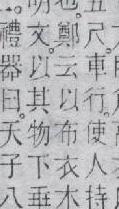 五尺。車行使人持
也。鄭云以布衣木
明文。以其物下垂
禮器曰。天子八